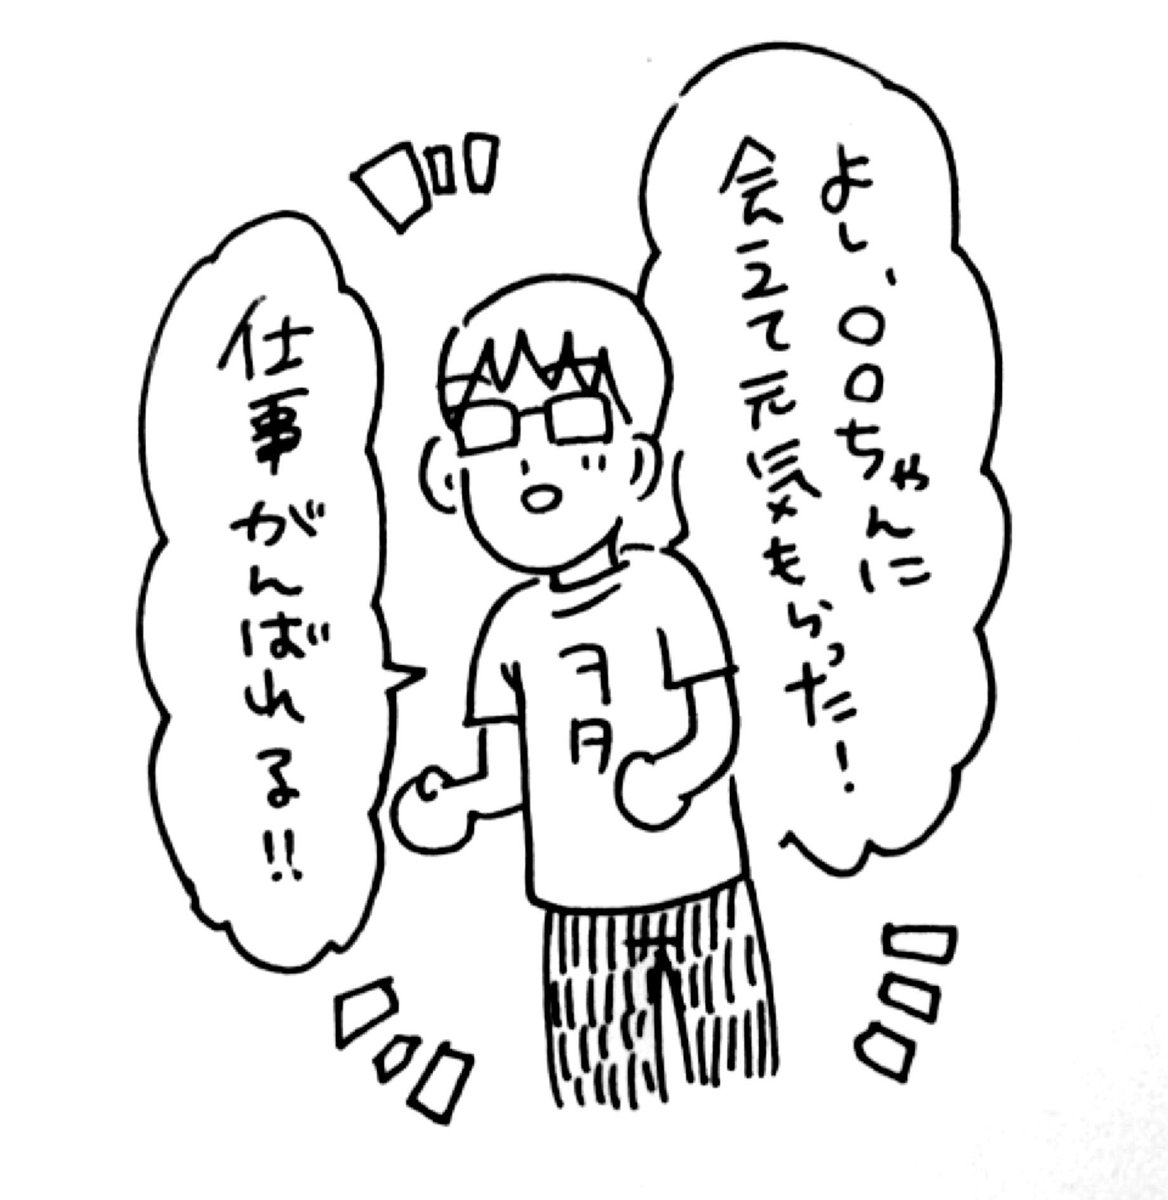 よし、〇〇ちゃんに
会えて元気もらった!
仕事がんばれる!!
ヲタ